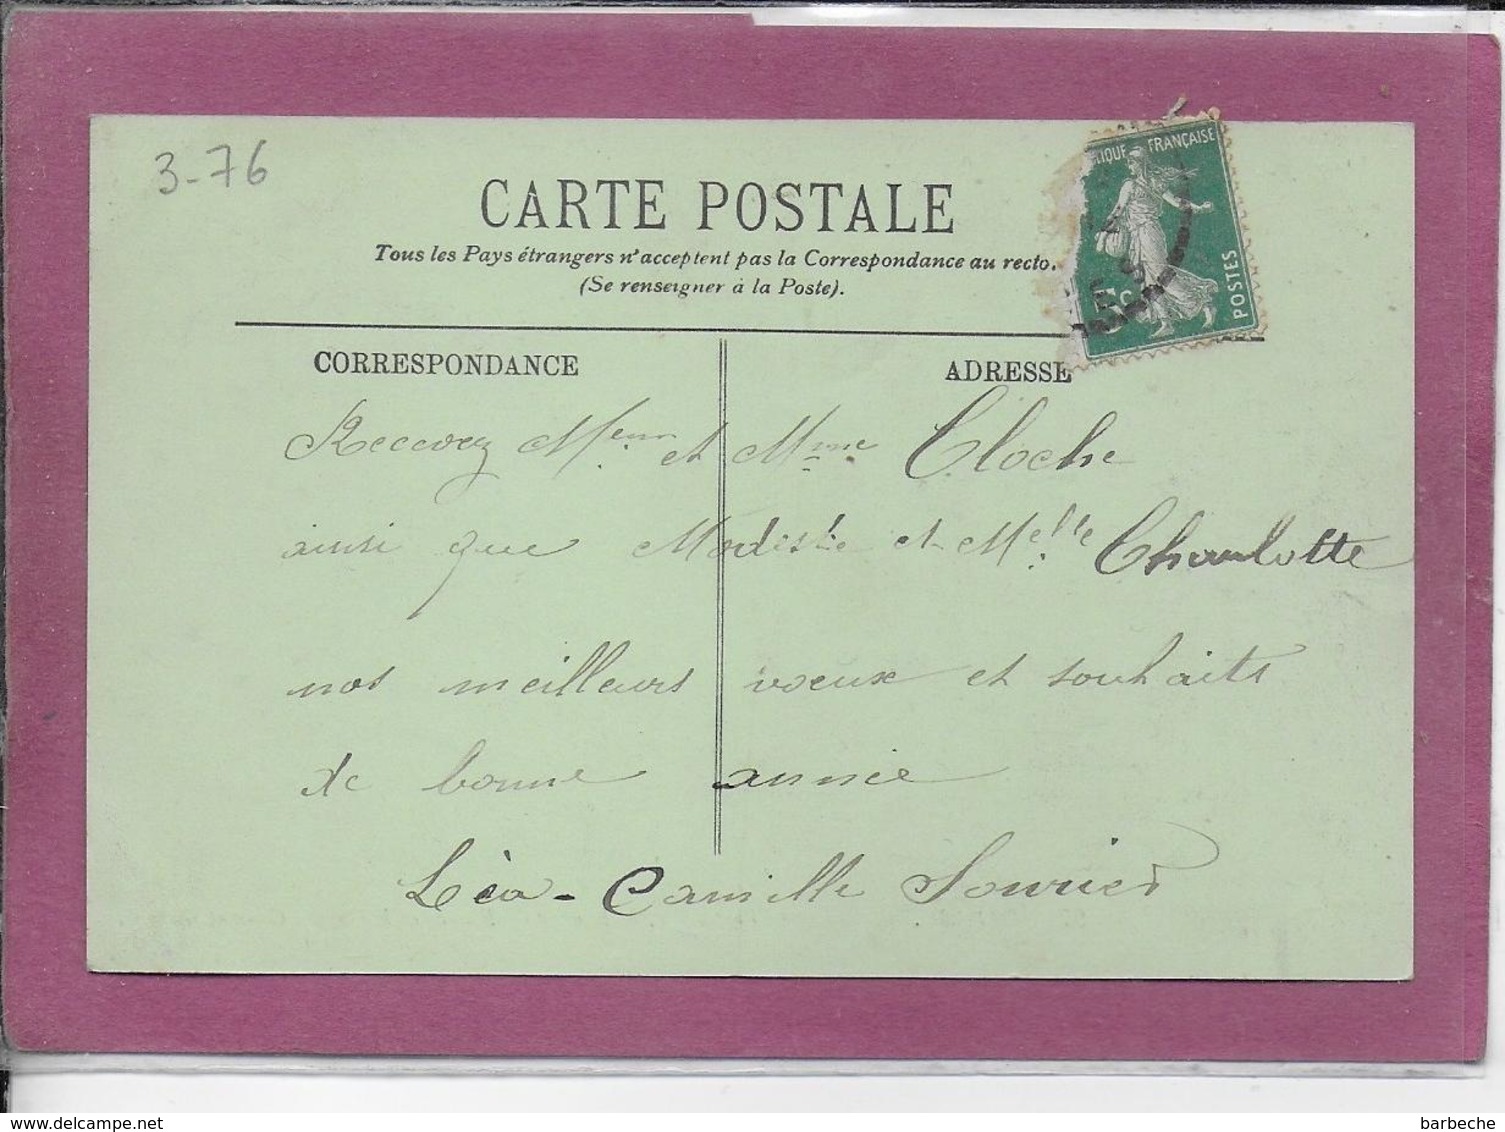 3-76
CARTE POSTALE
Tous les Pays étrangers n'acceptent pas la Correspondance au recto.
(Se renseigner à la Poste).
LIQUE FRANÇAISE
5c
POSTES
CORRESPONDANCE
ADRESSE
Recevez Meur et Mme Cloche
ainsi que Modeste et Melle Charlotte
nos meilleurs voeux et souhaits
de bonne année
Léa - Camille
www.delcampe.net
barbeche